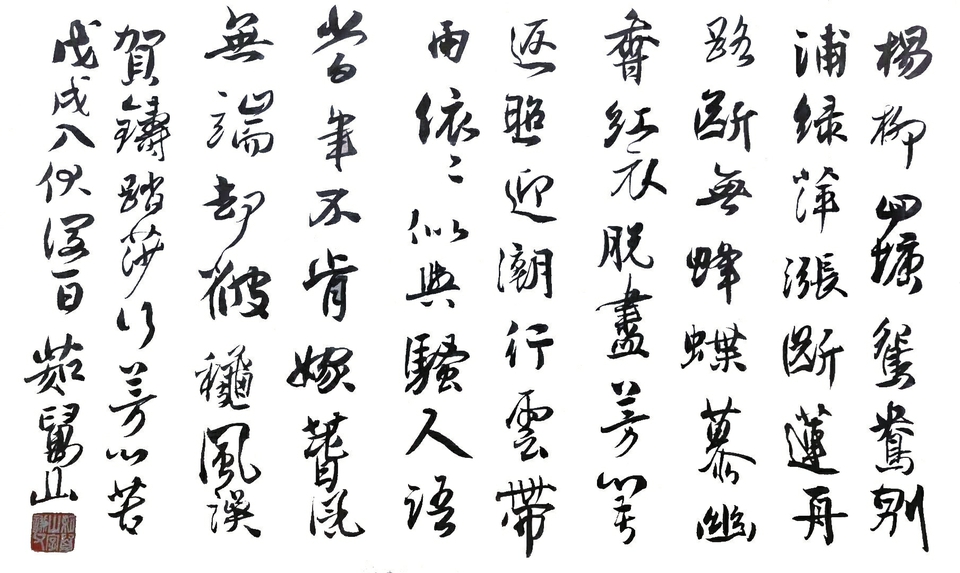 楊柳回塘鴛鴦別
浦綠萍漲斷蓮舟
路斷無蜂蝶慕幽
香紅衣脫盡芳心苦
返照迎潮行雲帶
雨依〻似與騷人語
當年不肯嫁春風
無端却被秋風誤
賀鑄踏莎行芳心苦
戊戌入伏後一日 茹山